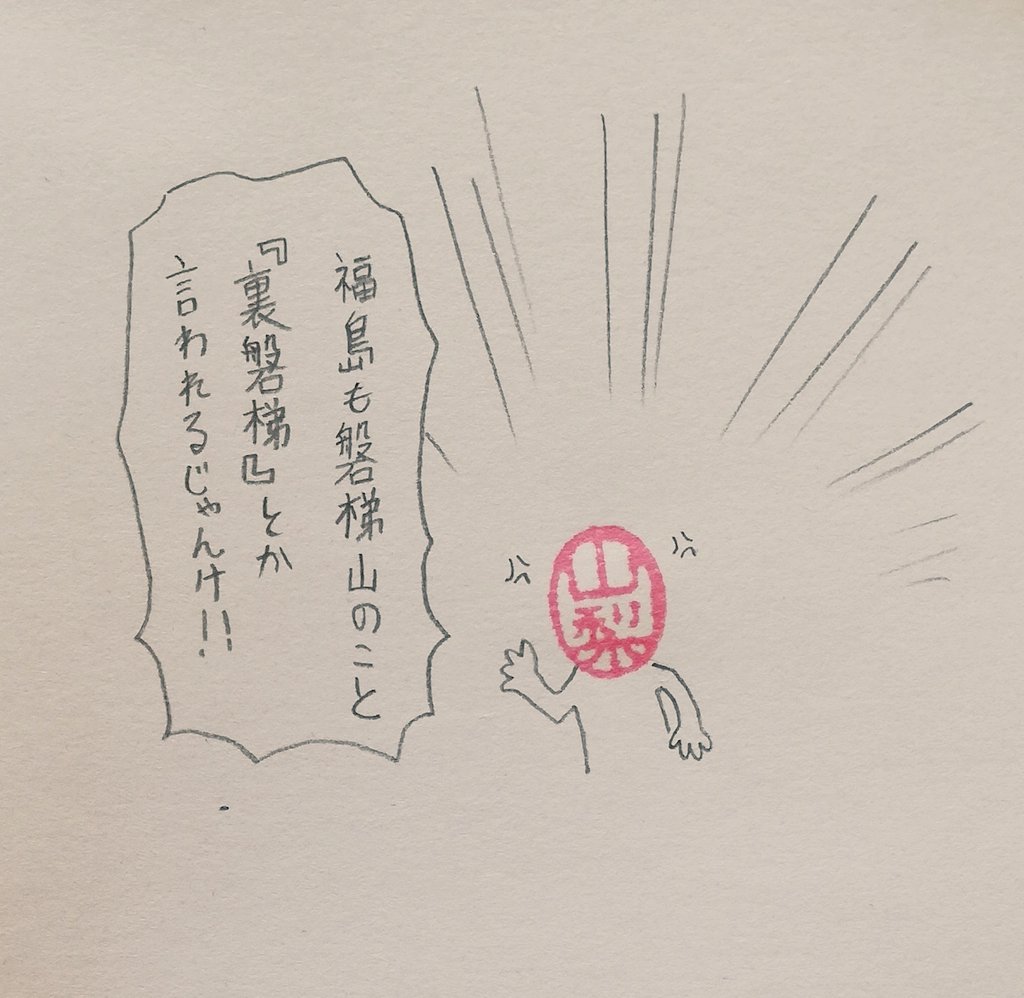 福島も磐梯山のこと
『裏磐梯』とか
言われるじゃんけ!!
山梨